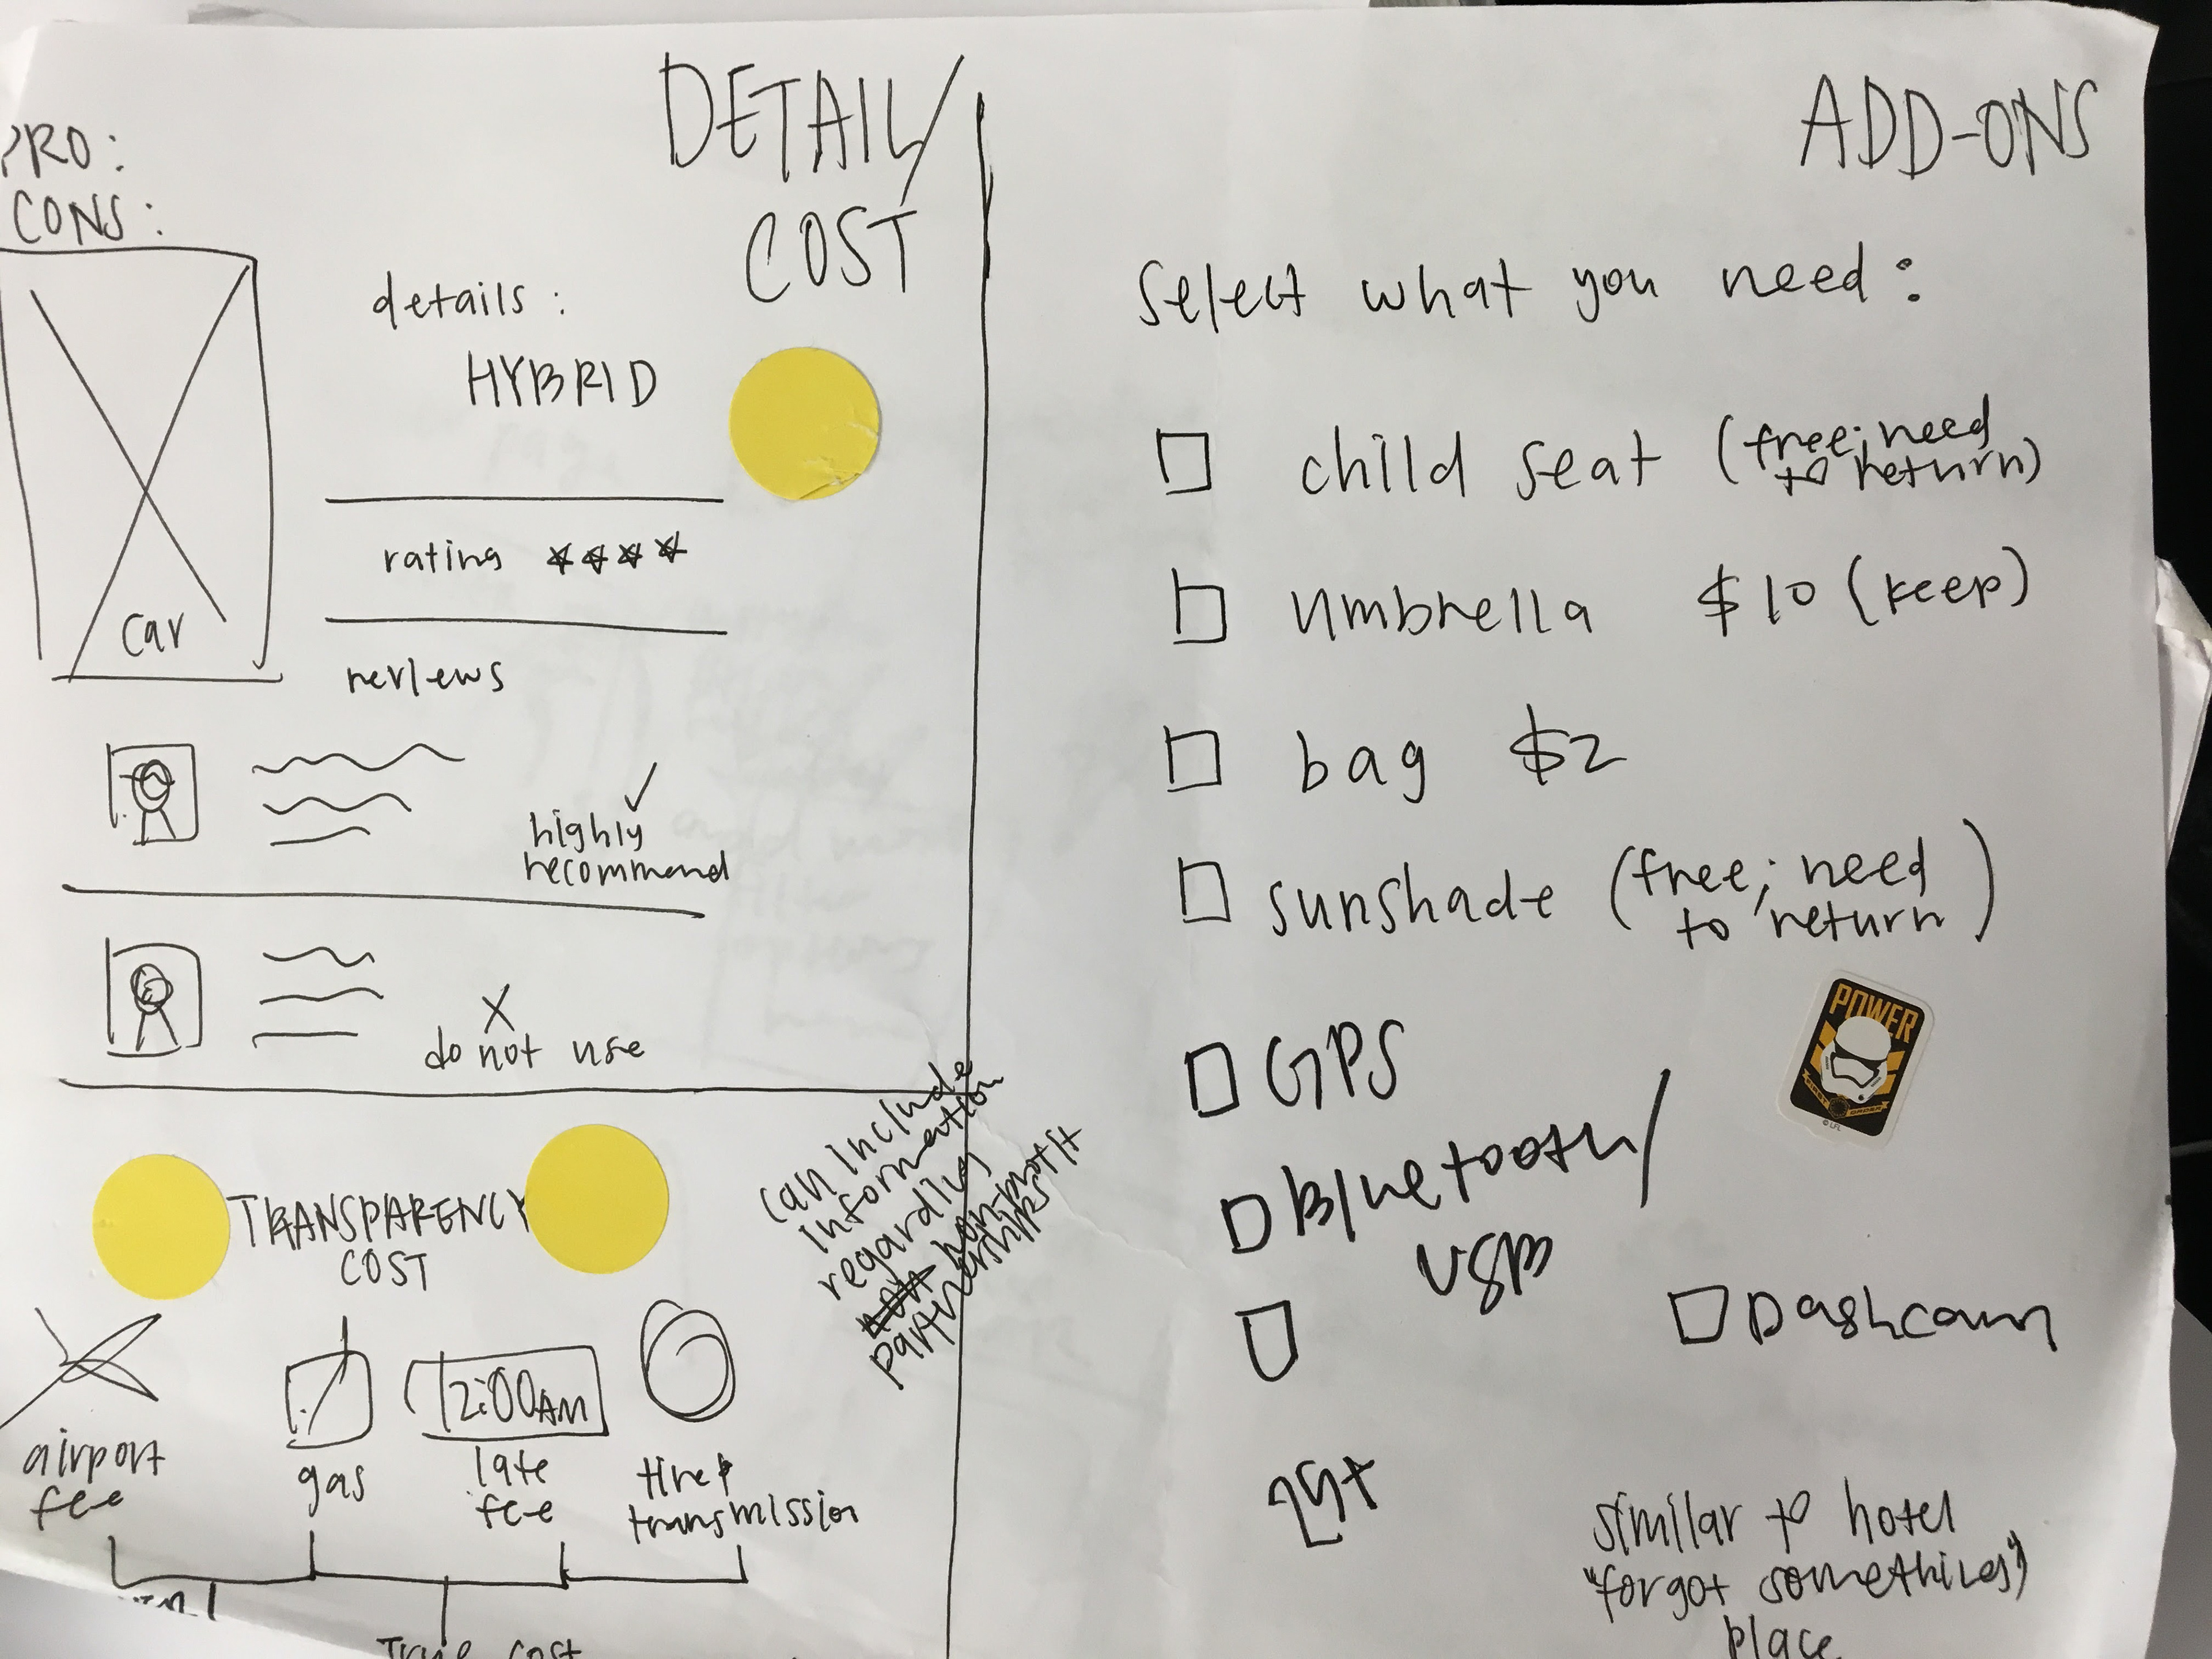 DETAIL/
COST
PRO:
CONS:
details:
HYBRID
car
rating
reviews
highly
recommend
do not use
TRANSPARENCY
COST
can include
information
regarding
non-profit
partnerships
airport
fee
gas
12:00AM
late
fee
tire &
transmission
True cost
ADD-ONS
Select what you need:
child seat (free; need
to return)
umbrella $10 (keep)
bag $2
sunshade (free; need
to return)
GPS
POWER
FIRST ORDER
© LFL
Bluetooth/
USB
Dashcam
similar to hotel
place